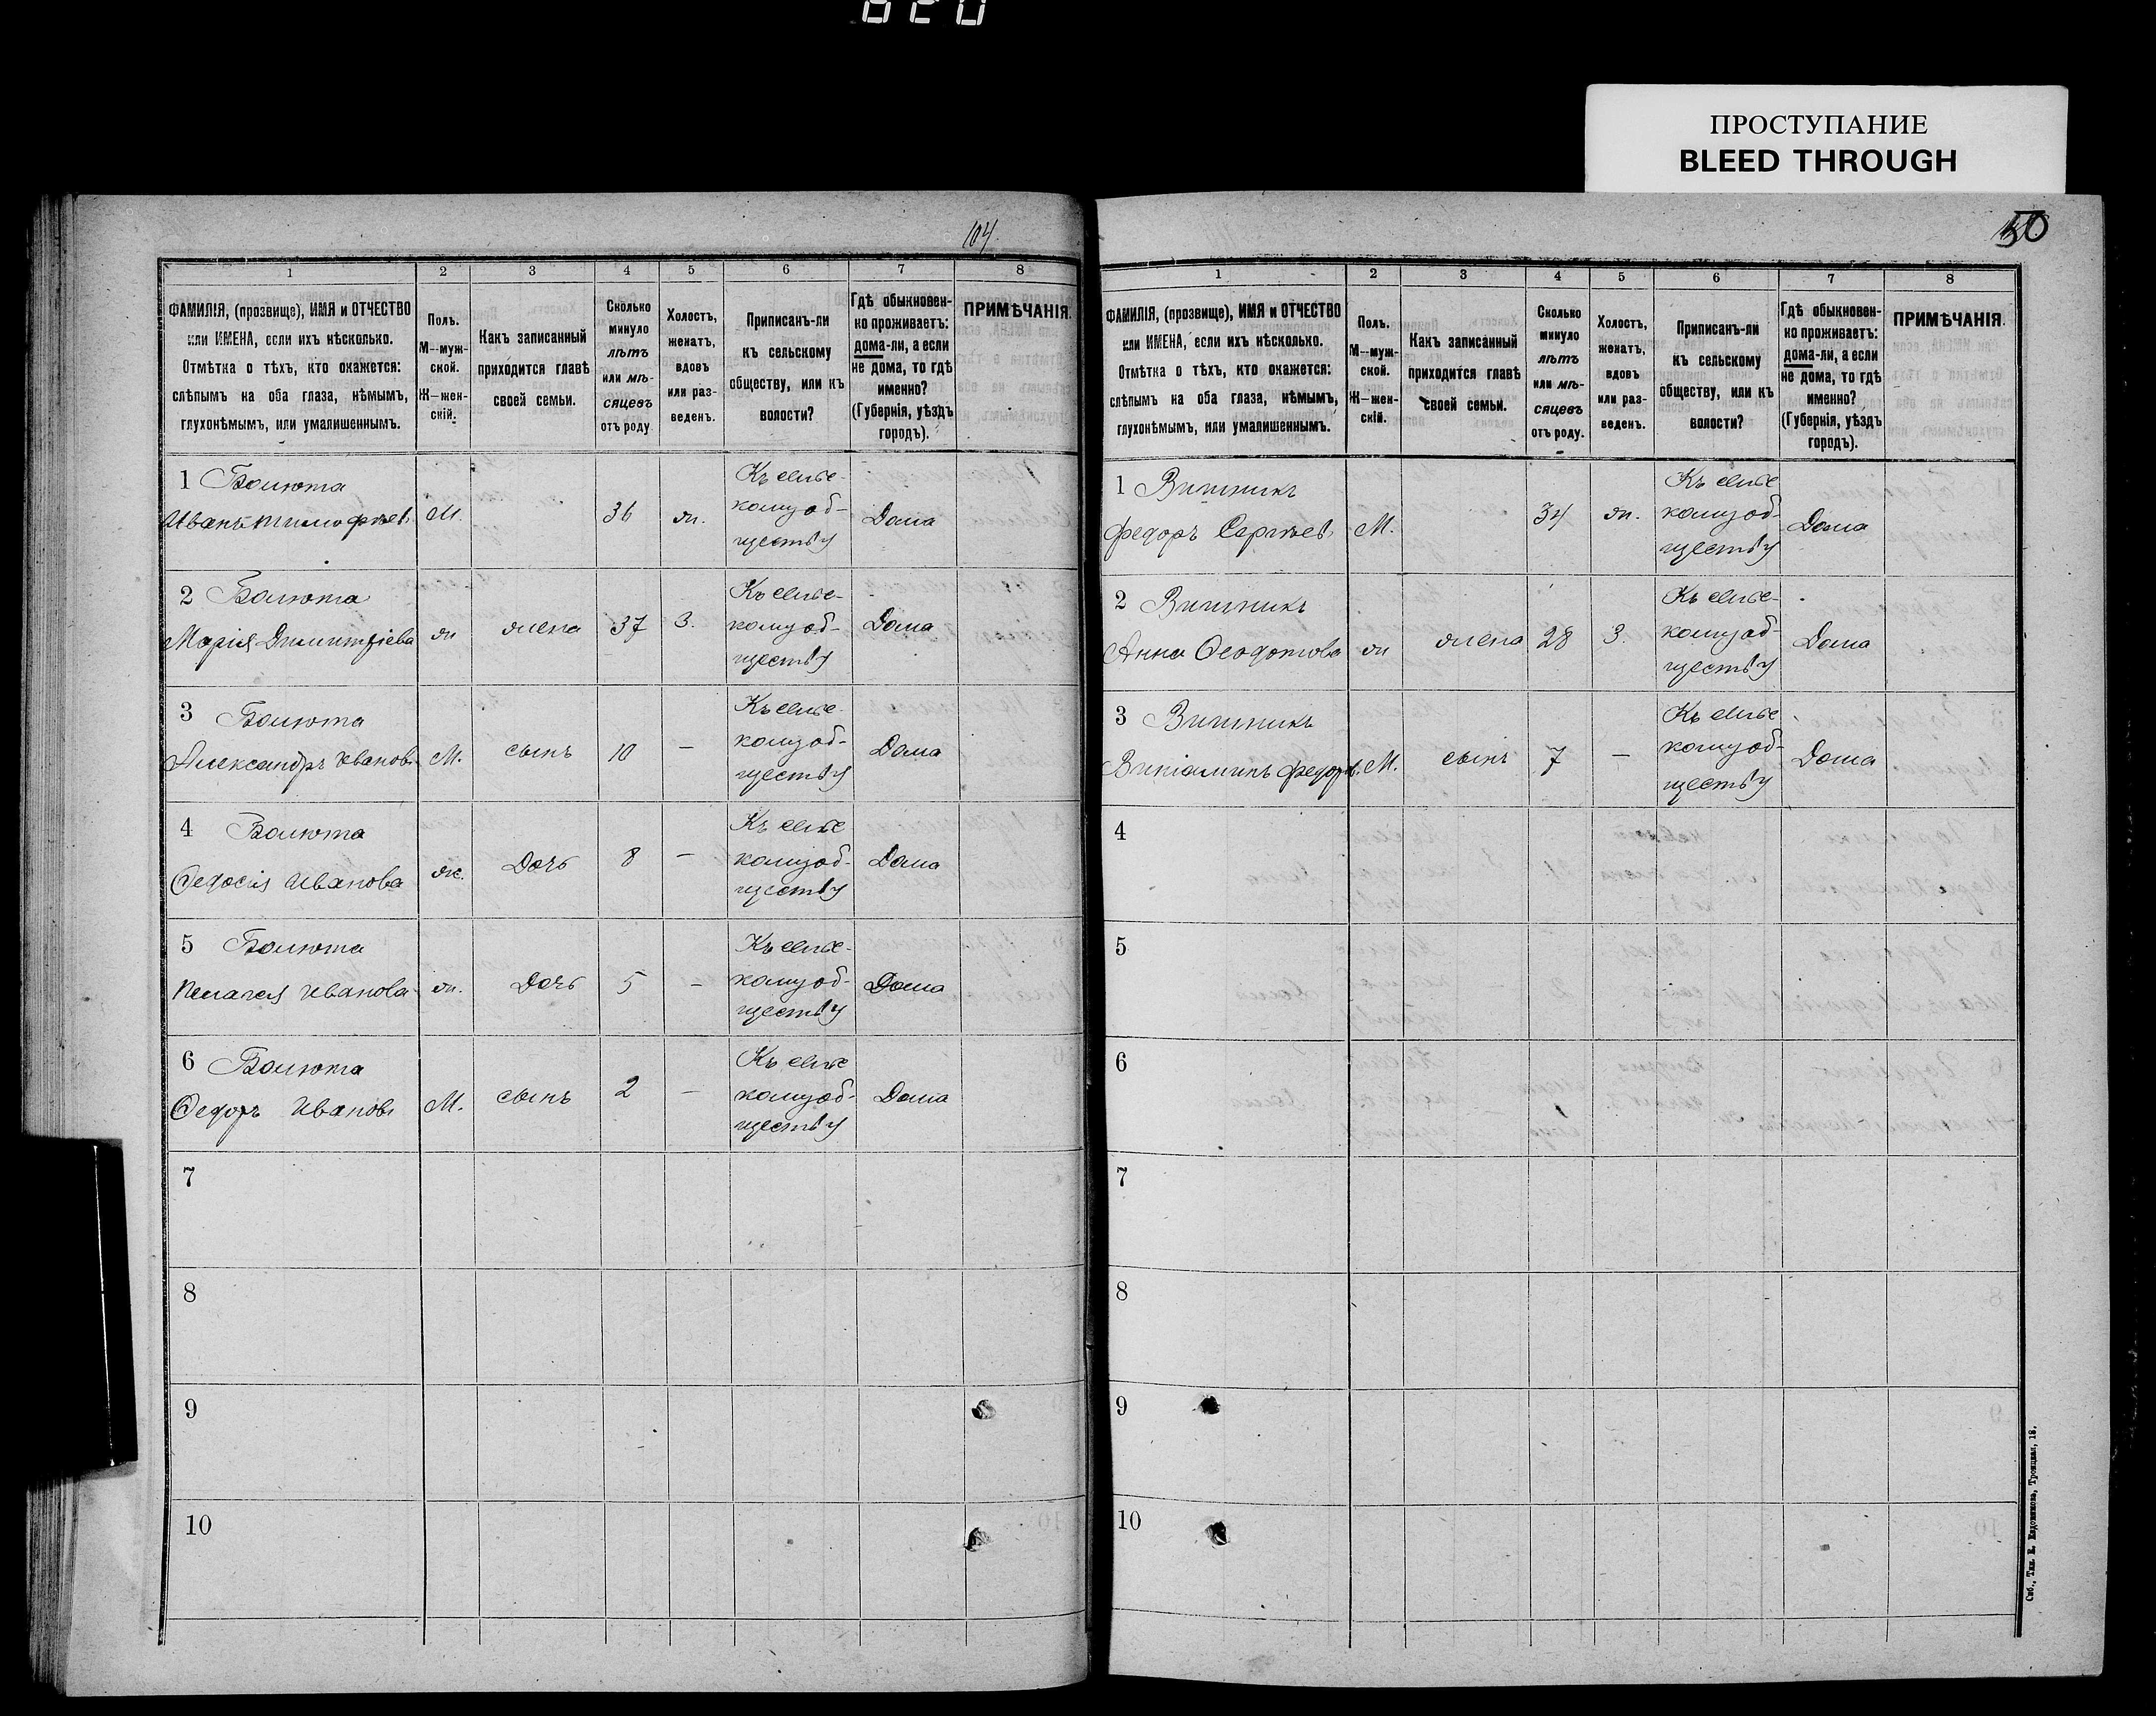 ПРОСТУПАНИЕ
BLEED THROUGH
104.
50
1
2
3
4
5
6
7
8
ФАМИЛІЯ, (прозвище), ИМЯ и ОТЧЕСТВО
или ИМЕНА, если ихъ нѣсколько.
Отмѣтка о тѣхъ, кто окажется:
слѣпымъ на оба глаза, нѣмымъ,
глухонѣмымъ, или умалишеннымъ.
Полъ.
М--муж-
ской.
Ж—жен-
скій.
Какъ записанный
приходится главѣ
своей семьи.
Сколько
минуло
лѣтъ
или мѣ-
сяцевъ
отъ роду.
Холостъ,
женатъ,
вдовъ
или раз-
веденъ.
Приписанъ-ли
къ сельскому
обществу, или къ
волости?
Гдѣ обыкновен-
но проживаетъ:
дома-ли, а если
не дома, то гдѣ
именно?
(Губернія, уѣздъ
городъ).
ПРИМѢЧАНІЯ.
1 Болюта
Иванъ Тимофѣев. М. 36 ж.
Къ сельс-
кому об-
ществу
Дома
2 Болюта
Марія Димитріева ж жена 37 З.
Къ сельс-
кому об-
ществу
Дома
3 Болюта
Александръ Иванов. М. сынъ 10 —
Къ сельс-
кому об-
ществу
Дома
4 Болюта
Ѳедосія Иванова ж. Дочь 8 —
Къ сельс-
кому об-
ществу
Дома
5 Болюта
Пелагея Иванова ж. Дочь 5 -
Къ сельс-
кому об-
ществу
Дома
6 Болюта
Ѳедоръ Иванов. М. сынъ 2 —
Къ сельс-
кому об-
ществу
Дома
7
8
9
10
1
2
3
4
5
6
7
8
ФАМИЛІЯ, (прозвище), ИМЯ и ОТЧЕСТВО
или ИМЕНА, если ихъ нѣсколько.
Отмѣтка о тѣхъ, кто окажется:
слѣпымъ на оба глаза, нѣмымъ,
глухонѣмымъ, или умалишеннымъ.
Полъ.
М--муж-
ской.
Ж—жен-
скій.
Какъ записанный
приходится главѣ
своей семьи.
Сколько
минуло
лѣтъ
или мѣ-
сяцевъ
отъ роду.
Холостъ,
женатъ,
вдовъ
или раз-
веденъ.
Приписанъ-ли
къ сельскому
обществу, или къ
волости?
Гдѣ обыкновен-
но проживаетъ:
дома-ли, а если
не дома, то гдѣ
именно?
(Губернія, уѣздъ
городъ).
ПРИМѢЧАНІЯ.
1
федоръ Сергѣев. М. 34 ж.
Къ сельс
кому об-
ществу
Дома
2
Анна Ѳеодотова ж жена 28 З.
Къ сельс-
кому об-
ществу
Дома
3
Виніаминъ федоров. М. сынъ 7 —
Къ сельс
кому об-
ществу
Дома
4
5
6
7
8
9
10